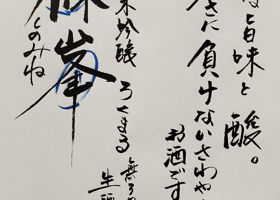 な旨味と酸。
さに負けないさわや
お酒です
米吟醸 ろくまる
生酒
峯
のみね